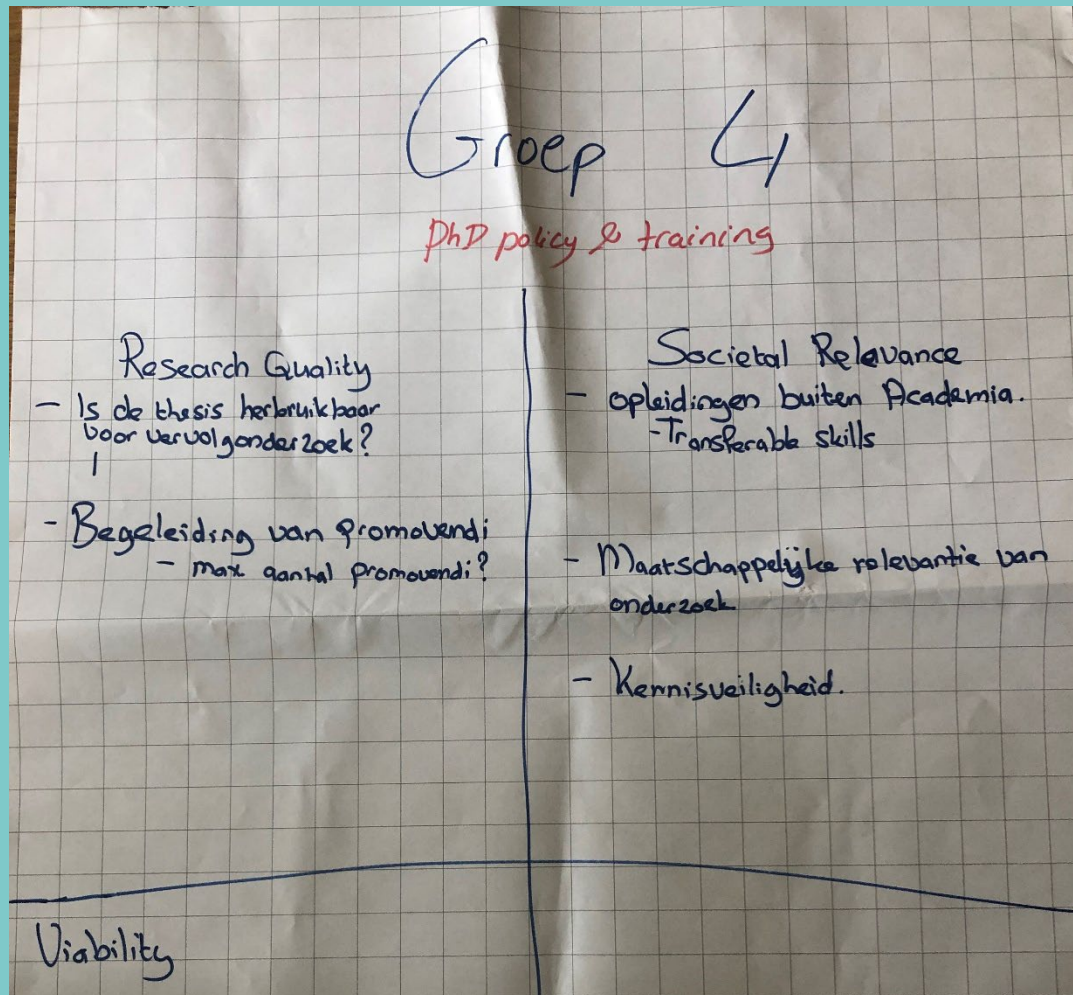 Groep 4
PhD policy & training
Research Quality
- Is de thesis herbruikbaar
voor vervolgonderzoek?
- Begeleiding van promovendi
- max aantal promovendi?
Societal Relevance
- opleidingen buiten Academia.
- Transferable skills
- Maatschappelijke relevantie van
onderzoek
- Kennisveiligheid.
Viability